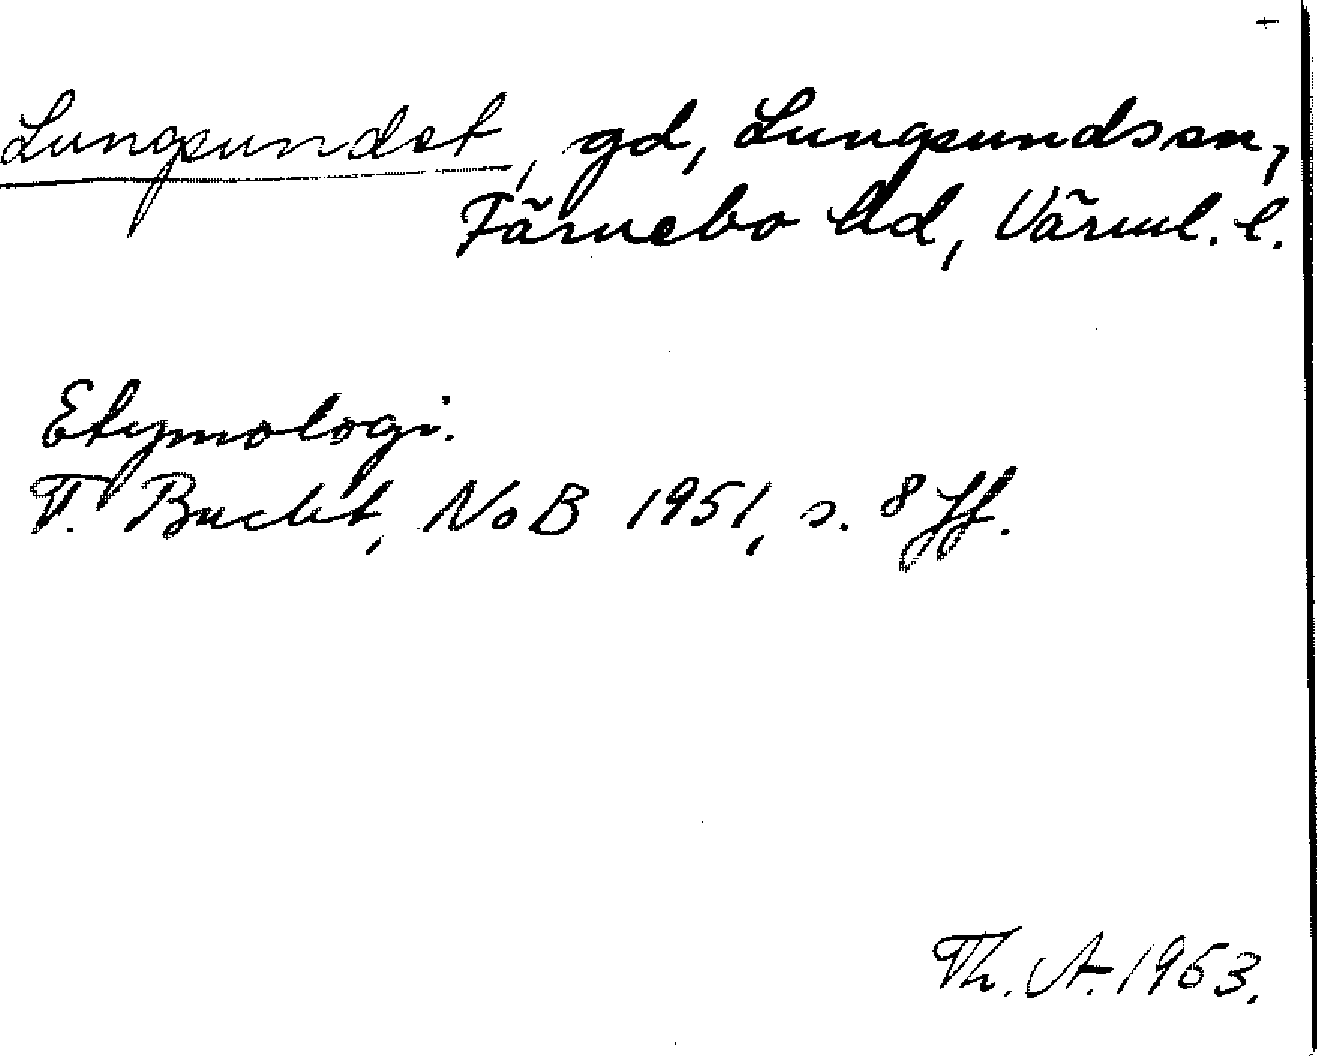 Lungsundet, gd, Lungsunds sn,
Färnebo hd, Värml. l.
Etymologi.
T. Bucht, NoB 1951, s. 8 ff.
Th. A. 1963.